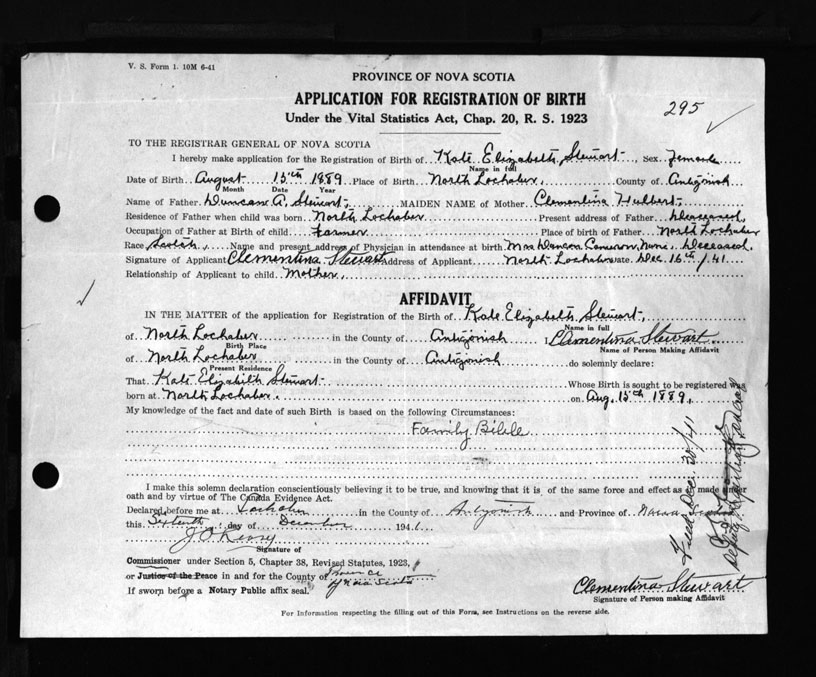 V. S. Form 1. 10M 6-41
PROVINCE OF NOVA SCOTIA
APPLICATION FOR REGISTRATION OF BIRTH
295
Under the Vital Statistics Act, Chap. 20, R. S. 1923
TO THE REGISTRAR GENERAL OF NOVA SCOTIA
I hereby make application for the Registration of Birth of Kate Elizabeth Stewart, Sex Female
Name in full
Date of Birth August 15th 1889 Place of Birth North Lochaber, County of Antigonish
Month Date Year
Name of Father Duncan A. Stewart, MAIDEN NAME of Mother Clementina Hulbert.
Residence of Father when child was born North Lochaber Present address of Father Deceased,
Occupation of Father at Birth of child Farmer Place of birth of Father North Lochaber
Race Scotch, Name and present address of Physician in attendance at birth Mrs Duncan Cameron, Nurse. Deceased.
Signature of Applicant Clementina Stewart Address of Applicant North Lochaber Date Dec. 16th /41
Relationship of Applicant to child Mother.
AFFIDAVIT
IN THE MATTER of the application for Registration of the Birth of Kate Elizabeth Stewart,
Name in full
of North Lochaber in the County of Antigonish I Clementina Stewart
Birth Place Name of Person Making Affidavit
of North Lochaber in the County of Antigonish do solemnly declare:
Present Residence
That Kate Elizabeth Stewart Whose Birth is sought to be registered was
born at North Lochaber. on Aug. 15th 1889.
My knowledge of the fact and date of such Birth is based on the following Circumstances:
Family Bible
I make this solemn declaration conscientiously believing it to be true, and knowing that it is of the same force and effect as if made under
oath and by virtue of The Canada Evidence Act.
Declared before me at Lochaber in the County of Antigonish and Province of Nova Scotia
this Sixteenth day of December 1941
Signature of
Commissioner under Section 5, Chapter 38, Revised Statutes, 1923,
or Justice of the Peace in and for the County of Province
of Nova Scotia
If sworn before a Notary Public affix seal.
Clementina Stewart
Signature of Person making Affidavit
For Information respecting the filling out of this Form, see Instructions on the reverse side.
Filed Dec 30/41
Deputy Registrar General